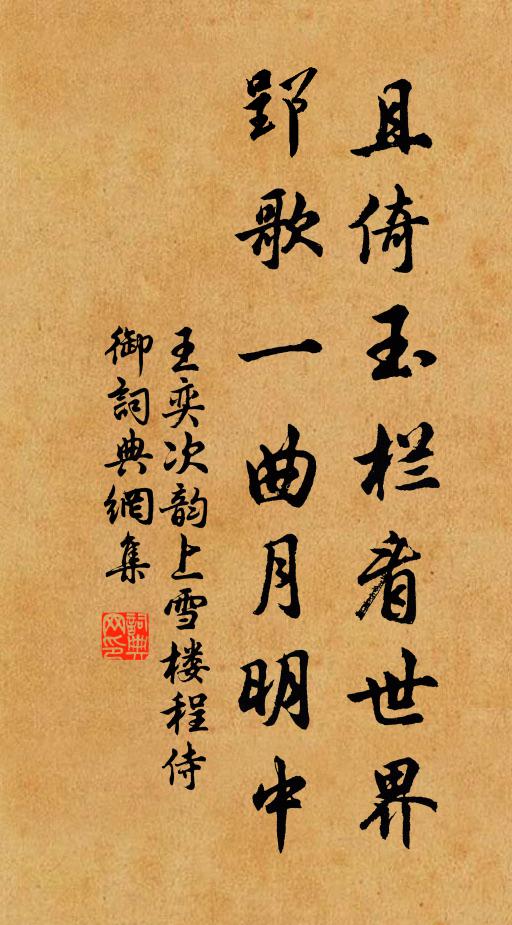 且倚玉栏看世界
郢歌一曲月明中
王奕次韵上雪楼程侍
御詞典網集
詞典網印